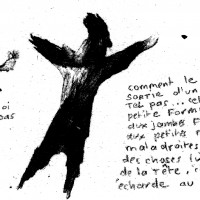 oi
pas
comment le
SORTIE d'un
Tel pas... ce
petite Form
aux jambes F
aux petites
maladroites
des choses (
de la Tête,
écharde au